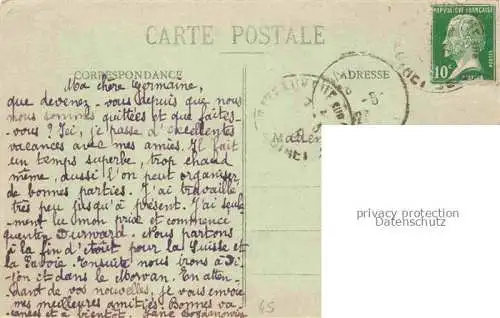 CARTE POSTALE
RÉPUBLIQUE FRANÇAISE
10c
CORRESPONDANCE
ADRESSE
Ma chère Germaine,
que devenez-vous depuis que nous
nous sommes quittées et que faites-
vous ? Ici, je passe d'excellentes
vacances avec mes amies. Il fait
un temps superbe, trop chaud
même, aussi l'on peut organiser
de bonnes parties. J'ai travaillé
très peu jusqu'à présent. J'ai seule-
ment lu et commencé
Quentin Durward. Nous partons
à la fin d'août pour la Suisse et
la Savoie. Ensuite nous irons à Di-
jon et dans le Morvan. En atten-
dant de vos nouvelles, je vous envoie
mes meilleures amitiés. Bonnes va-
cances et à bientôt.
Mademoi
privacy protection
Datenschutz
65